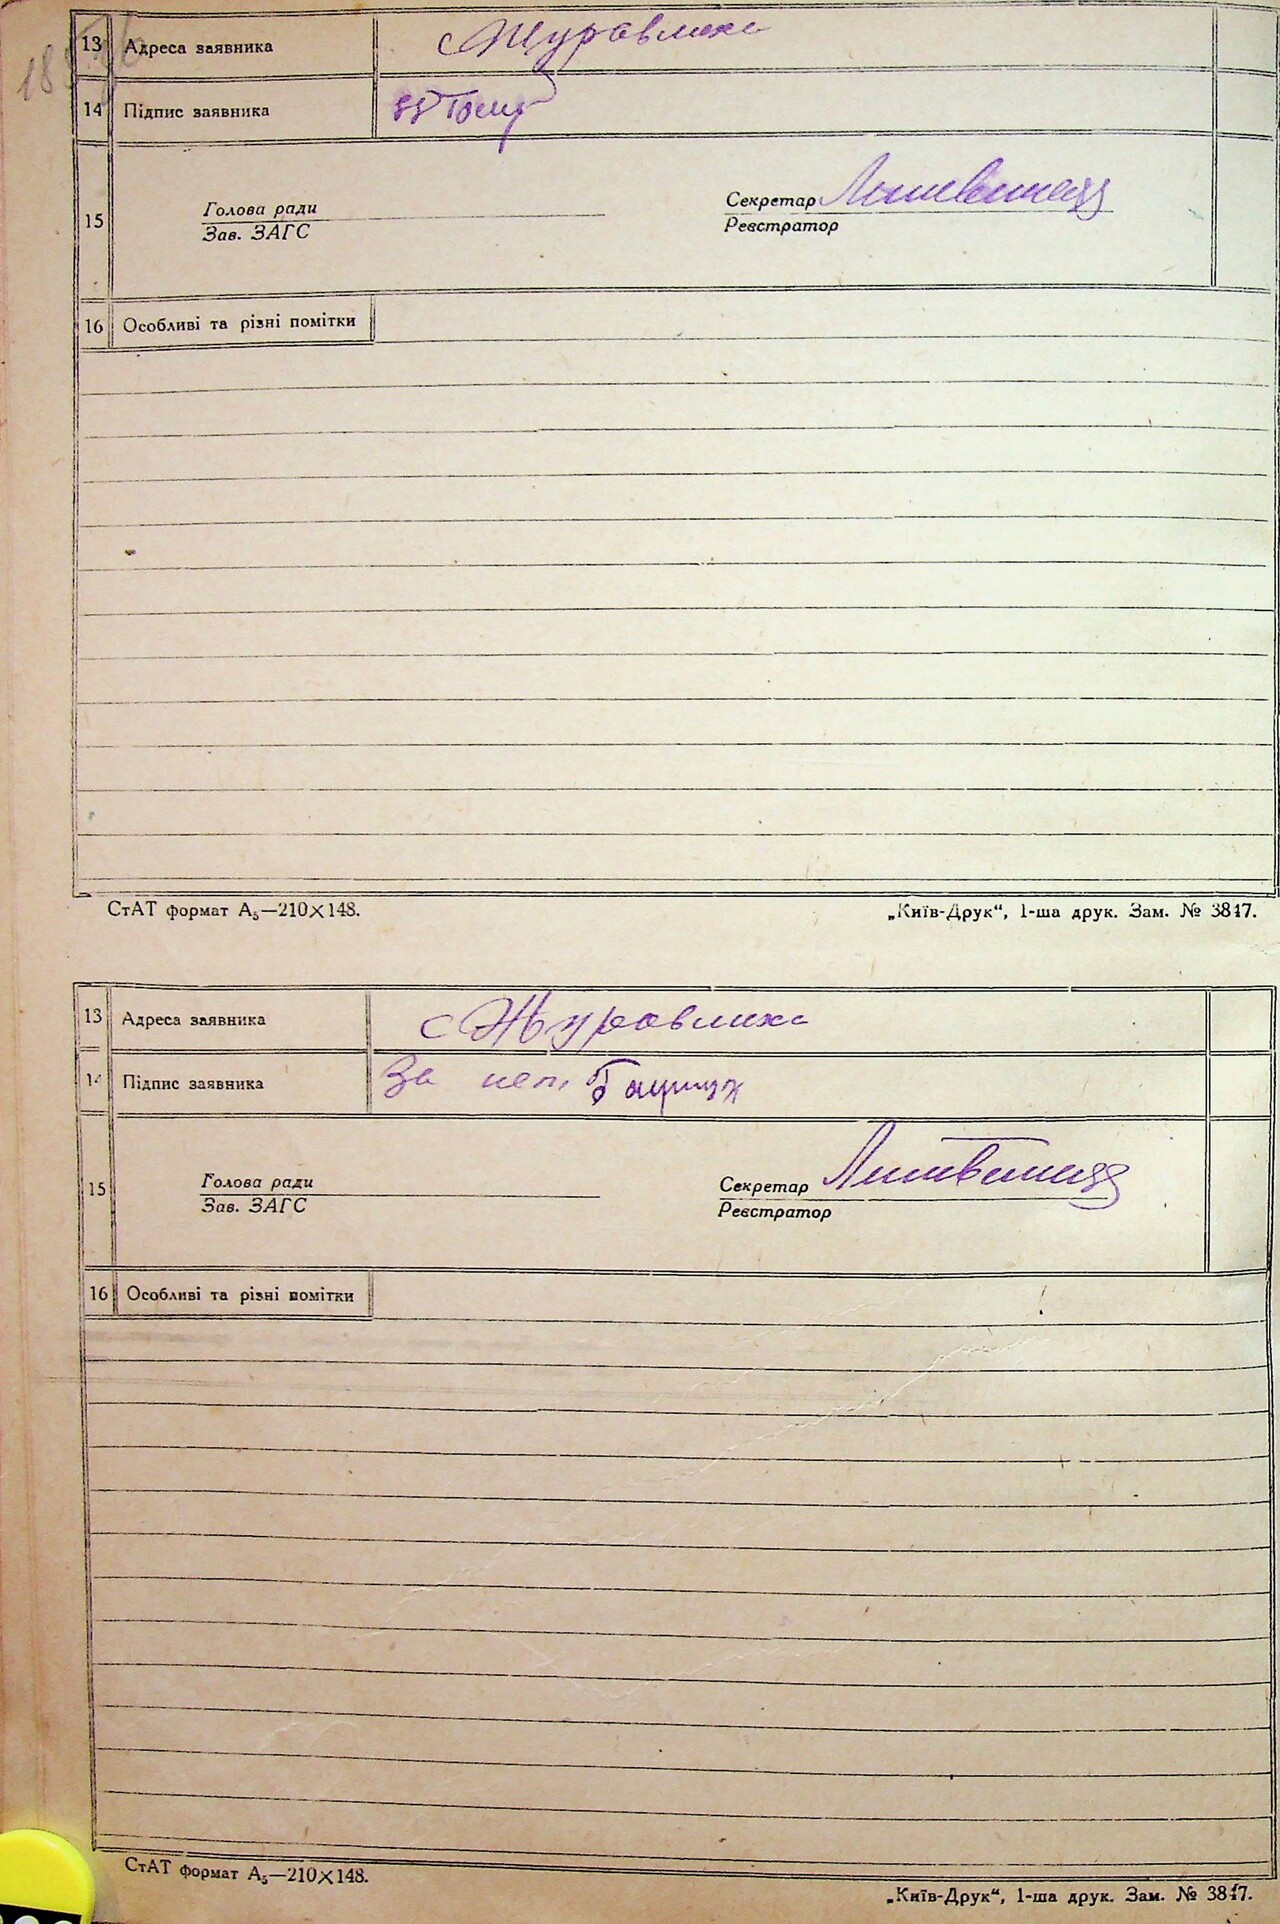 13 Адреса заявника с Журавлиха
14 Підпис заявника
15 Голова ради
Зав. ЗАГС
Секретар
Реєстратор
16 Особливі та різні помітки
СтАТ формат А₅—210×148.
„Київ-Друк“, 1-ша друк. Зам. № 3847.
13 Адреса заявника с Журавлиха
14 Підпис заявника За неп.
15 Голова ради
Зав. ЗАГС
Секретар
Реєстратор
16 Особливі та різні помітки
СтАТ формат А₅—210×148.
„Київ-Друк“, 1-ша друк. Зам. № 3847.